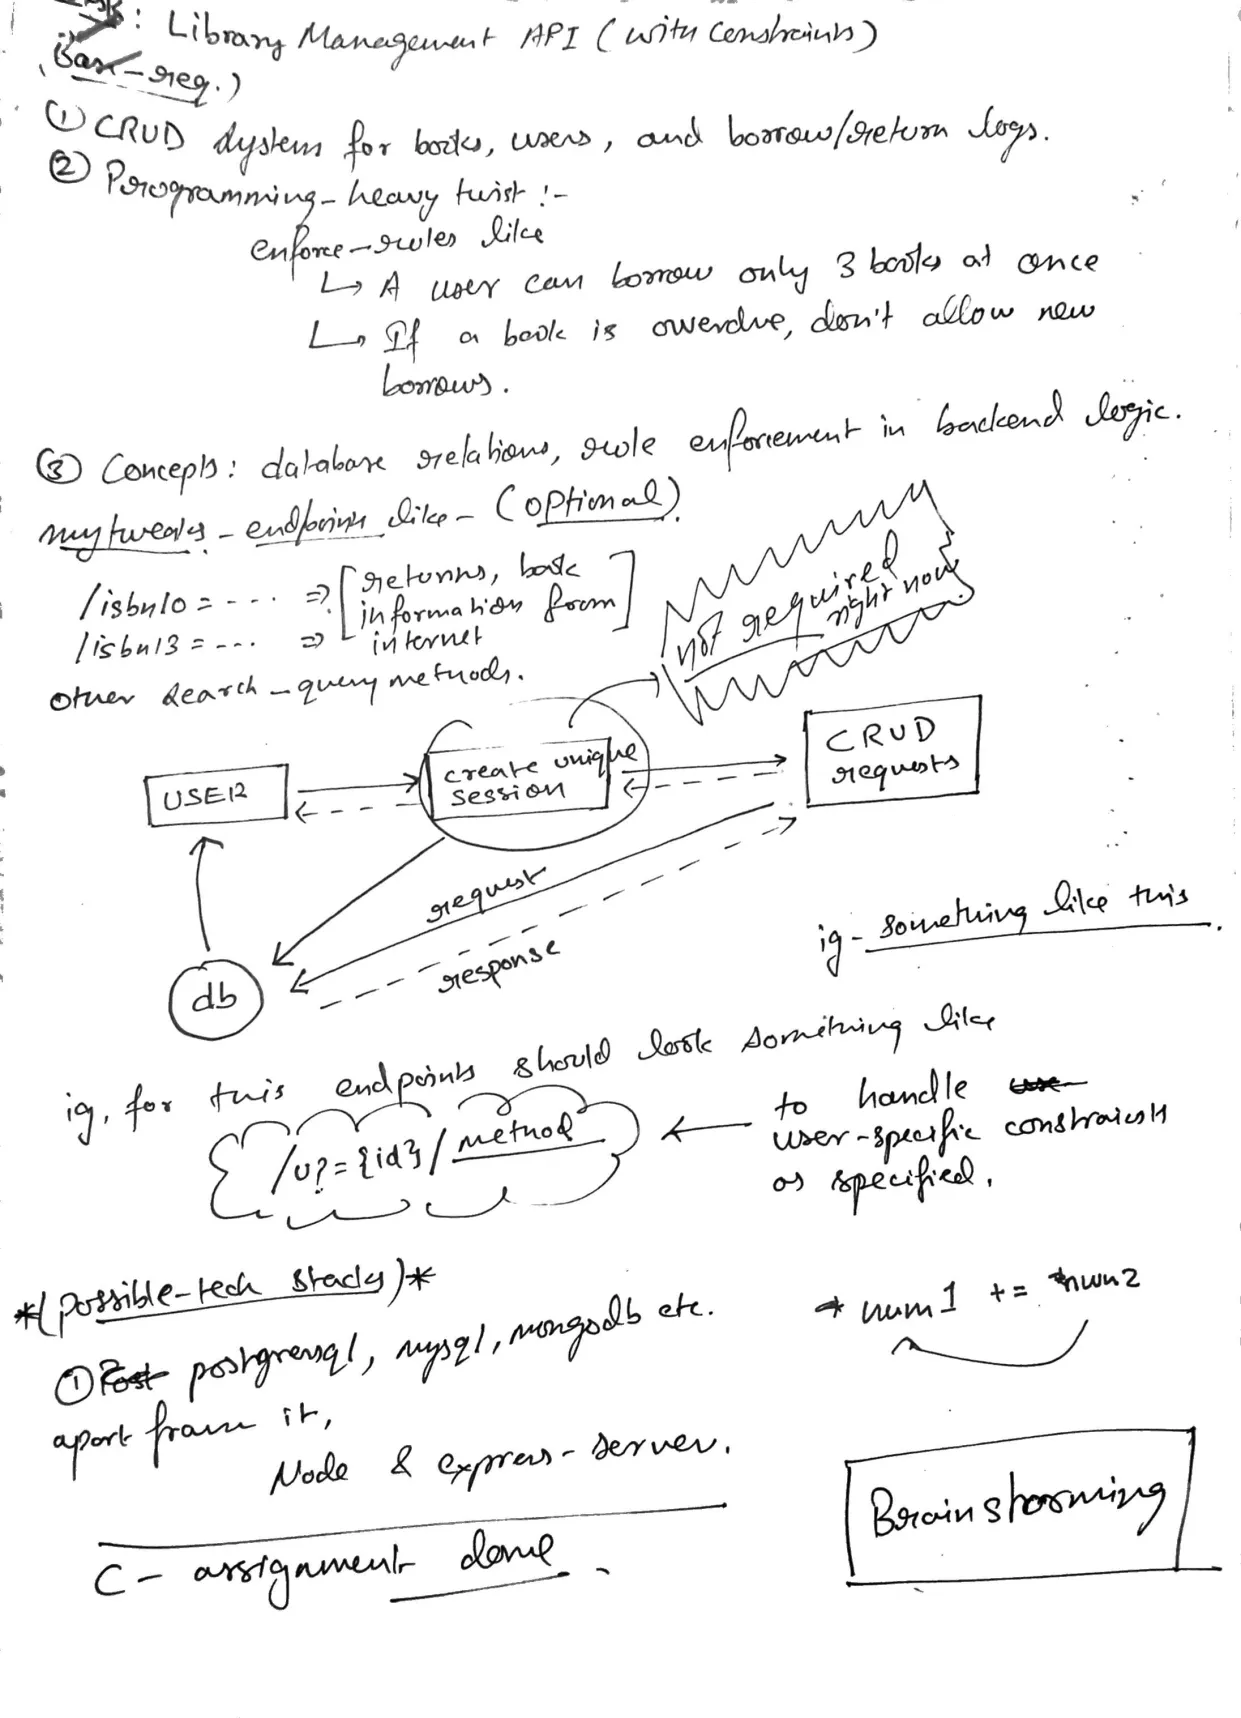 : Library Management API (with constraints)
(Base-req.)
① CRUD system for books, users, and borrow/return logs.
② Programming-heavy twist :-
enforce-rules like
↳ A user can borrow only 3 books at once
↳ If a book is overdue, don't allow new
borrows.
③ Concepts: database relations, role enforcement in backend logic.
my tweaks - endpoints like - (optional)
/isbn10 = - - - ⇒ [returns, book
information from
/isbn13 = - - - ⇒ internet]
other search-query methods.
not required
right now
USER
create unique
session
CRUD
requests
request
response
db
ig - something like this.
ig, for this endpoints should look something like
{ /u?={id}/method }
← to handle
user-specific constraints
as specified.
*(possible-tech stacks)*
① postgresql, mysql, mongodb etc.
apart from it,
Node & express-server.
* num1 += num2
C - assignment done.
Brainstorming